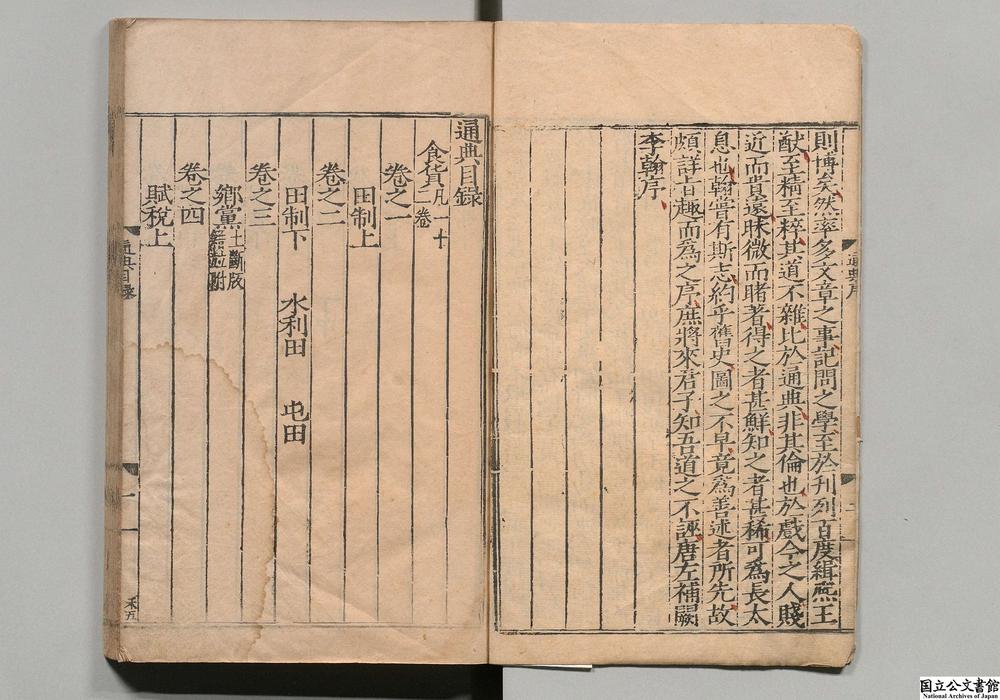 則博矣然率多文章之事記問之學至於刊列百度緝熈王
猷至精至粹其道不雜比於通典非其倫也於戲今之人賤
近而貴遠昧微而睹著得之者甚鮮知之者甚稀可為長太
息也翰嘗有斯志約乎舊史圖之不早竟為善述者所先故
頗詳旨趣而為之序庶將來君子知吾道之不誣唐左補闕
李翰序
通典序
通典目録
食貨凡一十二卷
卷之一
田制上
卷之二
田制下 水利田 屯田
卷之三
鄉黨土斷版
卷之四
賦稅上
通典目錄
国立公文書館
National Archives of Japan